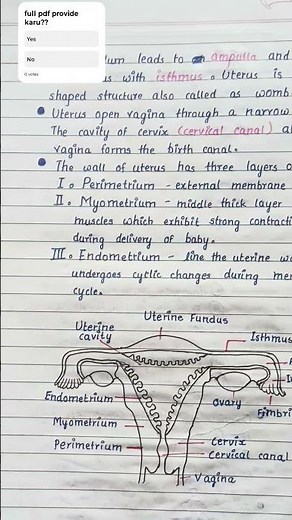 full pdf provide
karu??
Yes
No
0 votes
leads to ampulla and
with isthmus. Uterus is
shaped structure also called as womb
Uterus open vagina through a narrow
The cavity of cervix (cervical canal)
vagina forms the birth canal.
The wall of uterus has three layers
I. Perimetrium - external membrane
II. Myometrium - middle thick layer
muscles which exhibit strong
during delivery of baby.
III. Endometrium - line the uterine
undergoes cyclic changes during
cycle.
Uterine Fundus
Uterine
cavity
Isthmus
Endometrium
Ovary
Myometrium
Perimetrium
Cervix
Cervical canal
Vagina